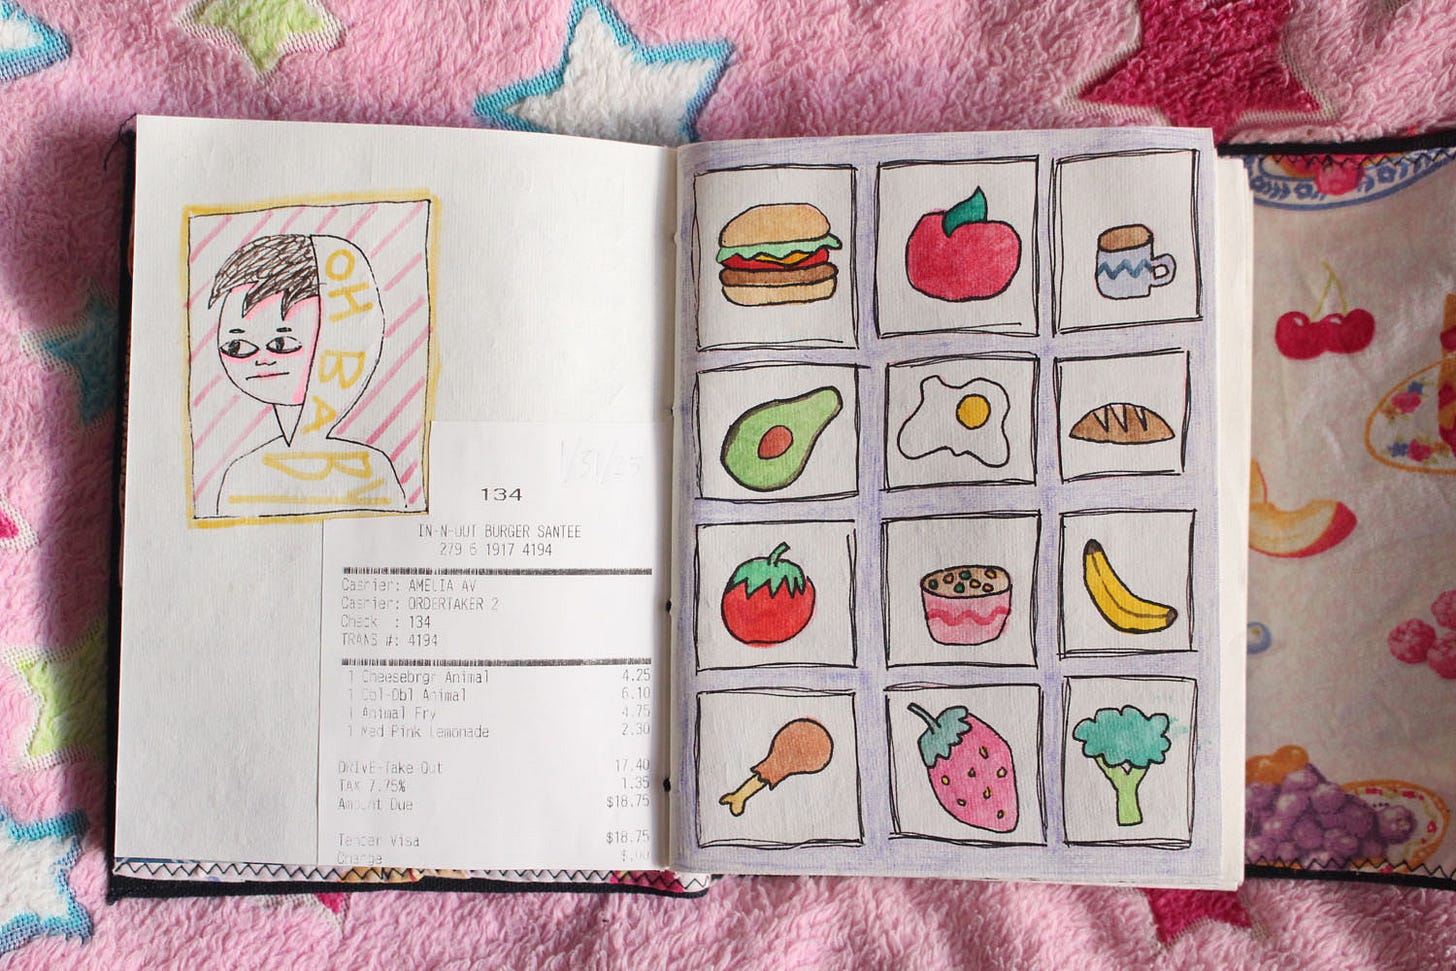 OH BABY
1/31/25
134
IN-N-OUT BURGER SANTEE
279 6 1917 4194
Cashier: AMELIA AV
Cashier: ORDERTAKER 2
Check : 134
TRANS #: 4194
1 Cheesebrgr Animal 4.25
1 Dbl-Dbl Animal 6.10
1 Animal Fry 4.75
1 Med Pink Lemonade 2.30
DRIVE-Take Out 17.40
TAX 7.75% 1.35
Amount Due $18.75
Tender Visa $18.75
Change $.00